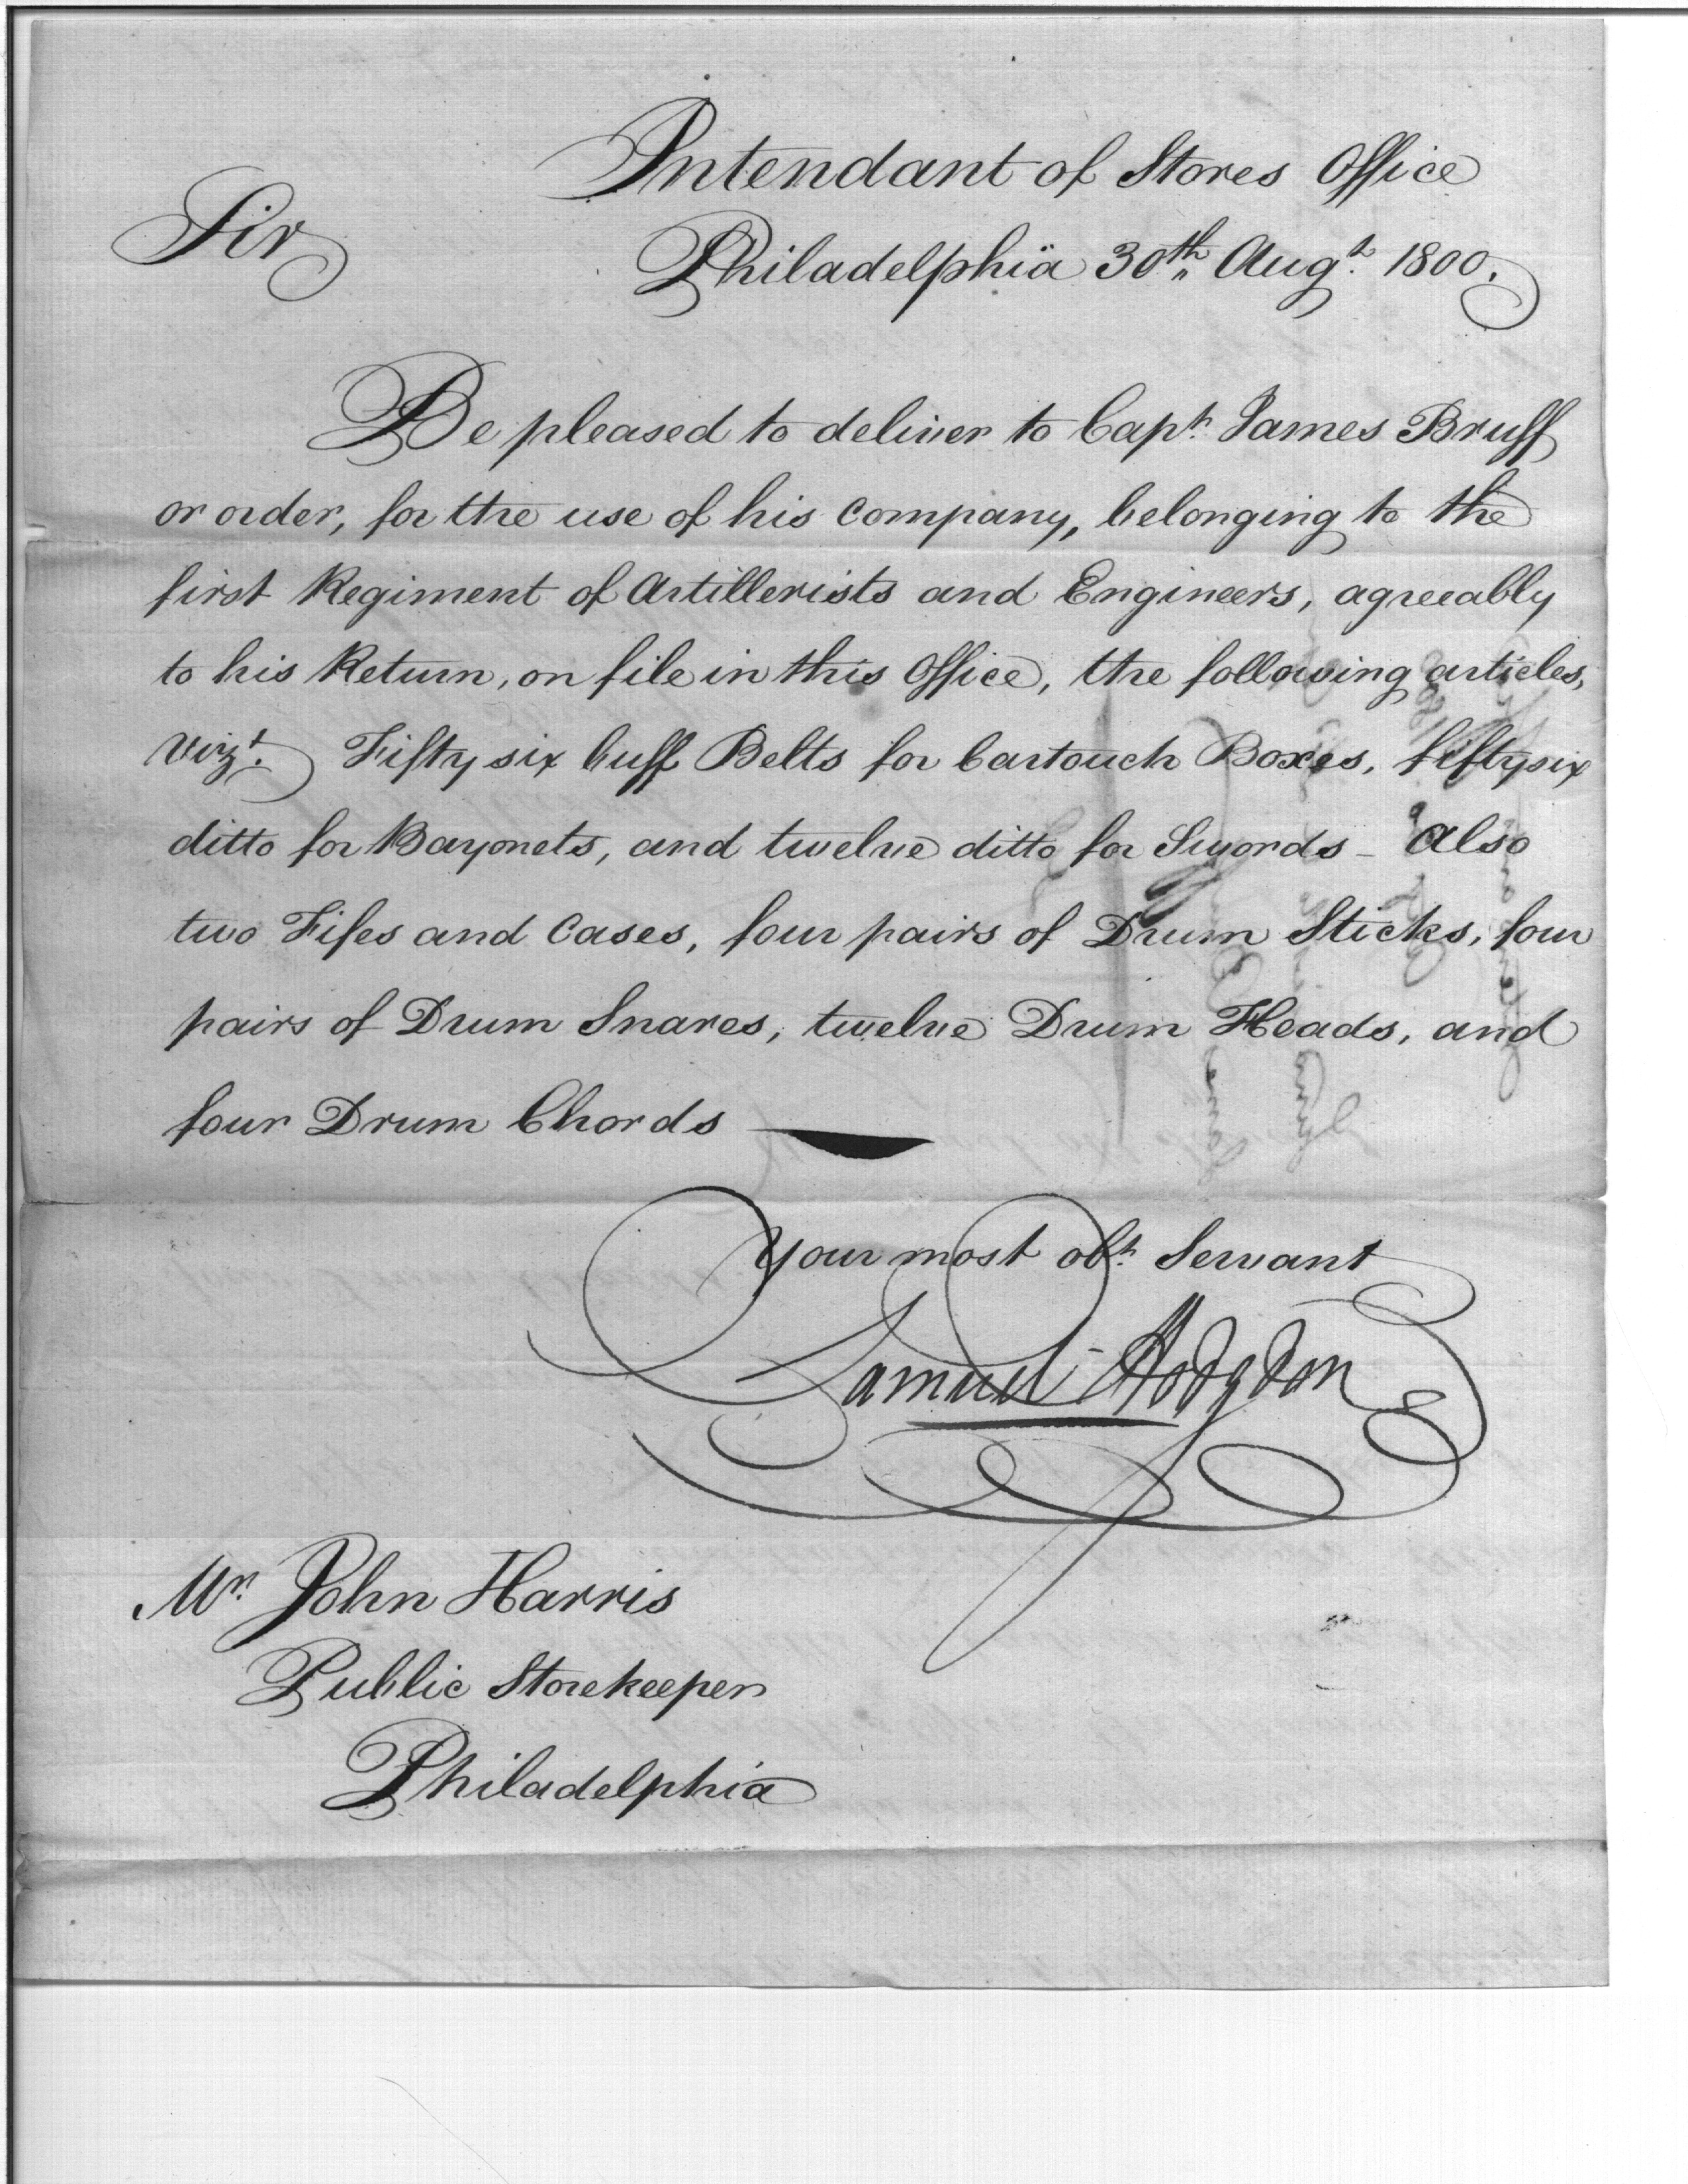 Intendant of Stores Office
Sir
Philadelphia 30th Augt. 1800.
Be pleased to deliver to Capt. James Bruff
or order, for the use of his Company, belonging to the
first Regiment of Artillerists and Engineers, agreeably
to his Return, on file in this Office, the following articles,
Vizt. Fifty six buff Belts for Cartouch Boxes, fifty six
ditto for Bayonets, and twelve ditto for Swords – Also
two Fifes and Cases, four pairs of Drum Sticks, four
pairs of Drum Snares, twelve Drum Heads, and
four Drum Chords
Your most obt. Servant
Samuel Hodgdon
Mr. John Harris
Public Storekeeper
Philadelphia